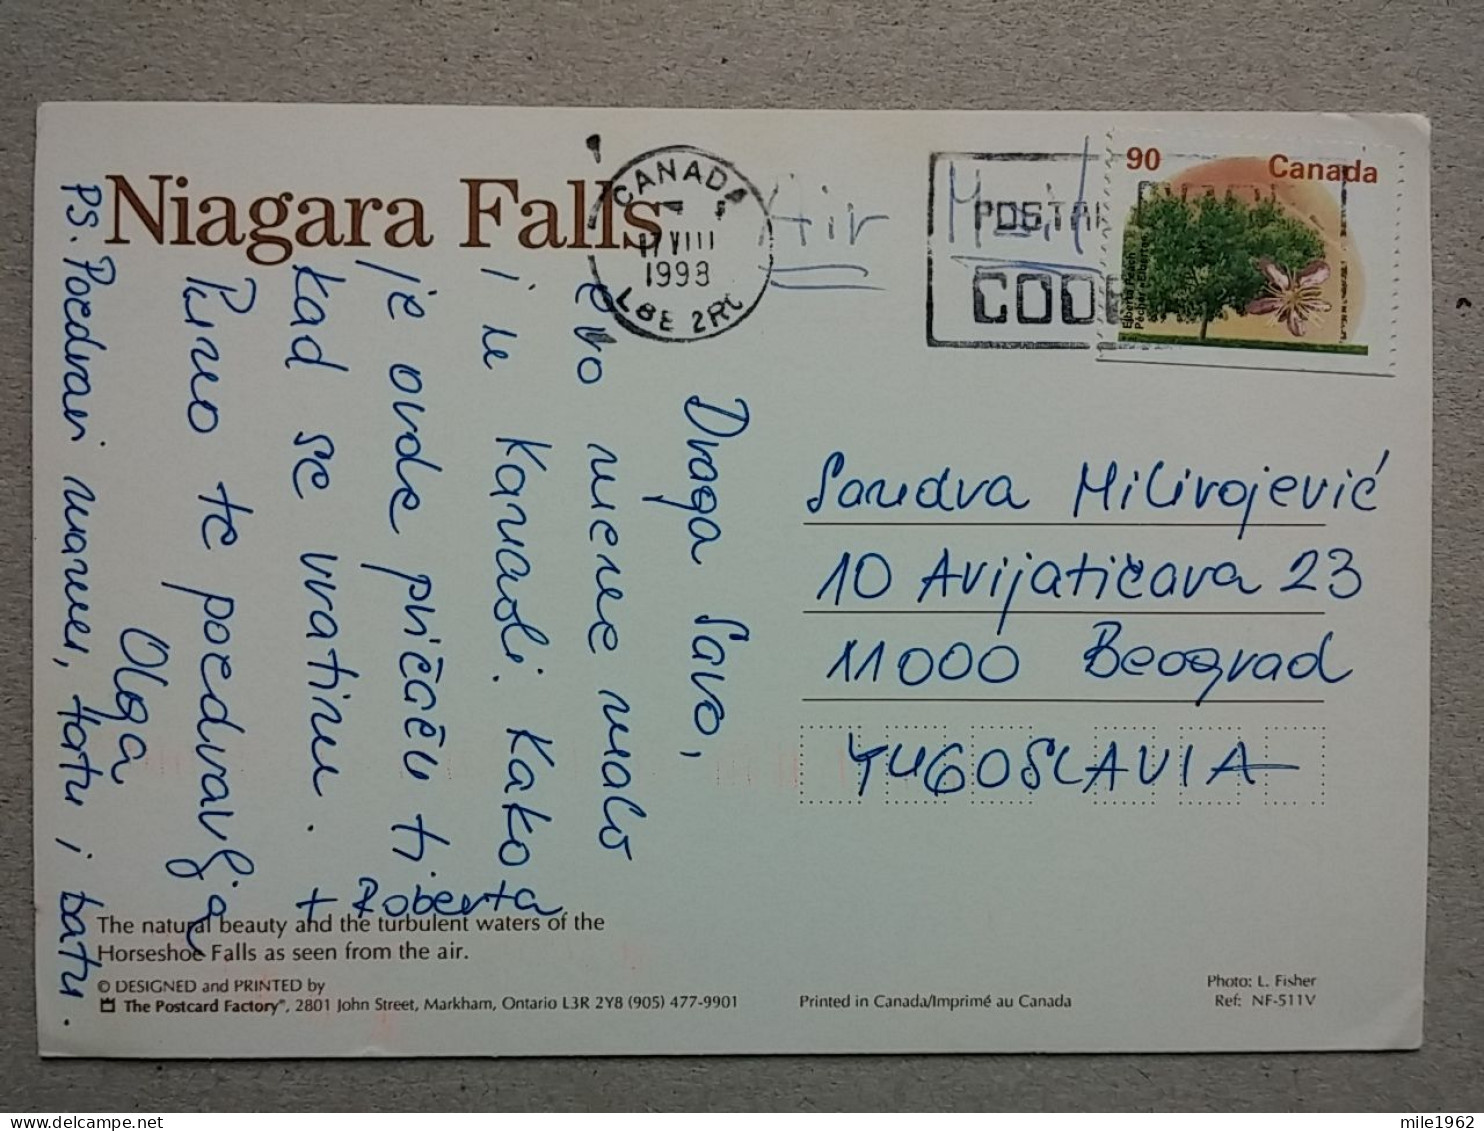 Niagara Falls
CANADA
17 VIII
1998
L8E 2R
Air Mail
POSTAL CODE
90 Canada
Draga Savo,
evo mene malo
i u Kanadi. Kako
je ovde pričaću ti
kad se vratim.
Puno te pozdravlja
Olga
+ Roberta
PS. Pozdravi mamu, tatu i batu.
Sandra Milivojević
10 Avijatičara 23
11000 Beograd
YUGOSLAVIA
The natural beauty and the turbulent waters of the
Horseshoe Falls as seen from the air.
© DESIGNED and PRINTED by
The Postcard Factory®, 2801 John Street, Markham, Ontario L3R 2Y8 (905) 477-9901
Printed in Canada/Imprimé au Canada
Photo: L. Fisher
Ref: NF-511V
mile1962